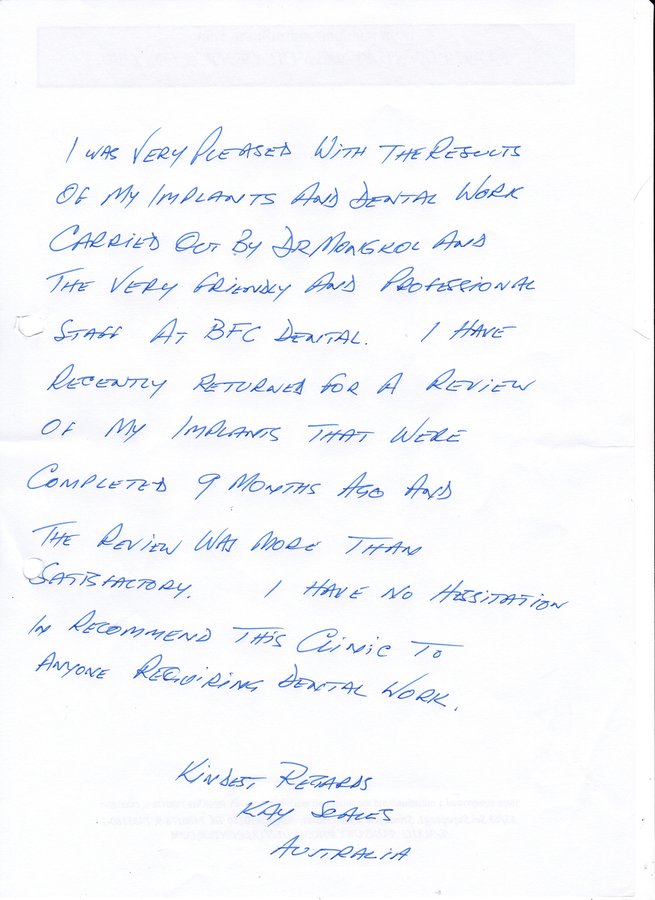 I WAS VERY PLEASED WITH THE RESULTS
OF MY IMPLANTS AND DENTAL WORK
CARRIED OUT BY DR MONGKOL AND
THE VERY FRIENDLY AND PROFESSIONAL
STAFF AT BFC DENTAL. I HAVE
RECENTLY RETURNED FOR A REVIEW
OF MY IMPLANTS THAT WERE
COMPLETED 9 MONTHS AGO AND
THE REVIEW WAS MORE THAN
SATISFACTORY. I HAVE NO HESSITATION
IN RECOMMEND THIS CLINIC TO
ANYONE REQUIRING DENTAL WORK.
KINDEST REGARDS
KAY
AUSTRALIA